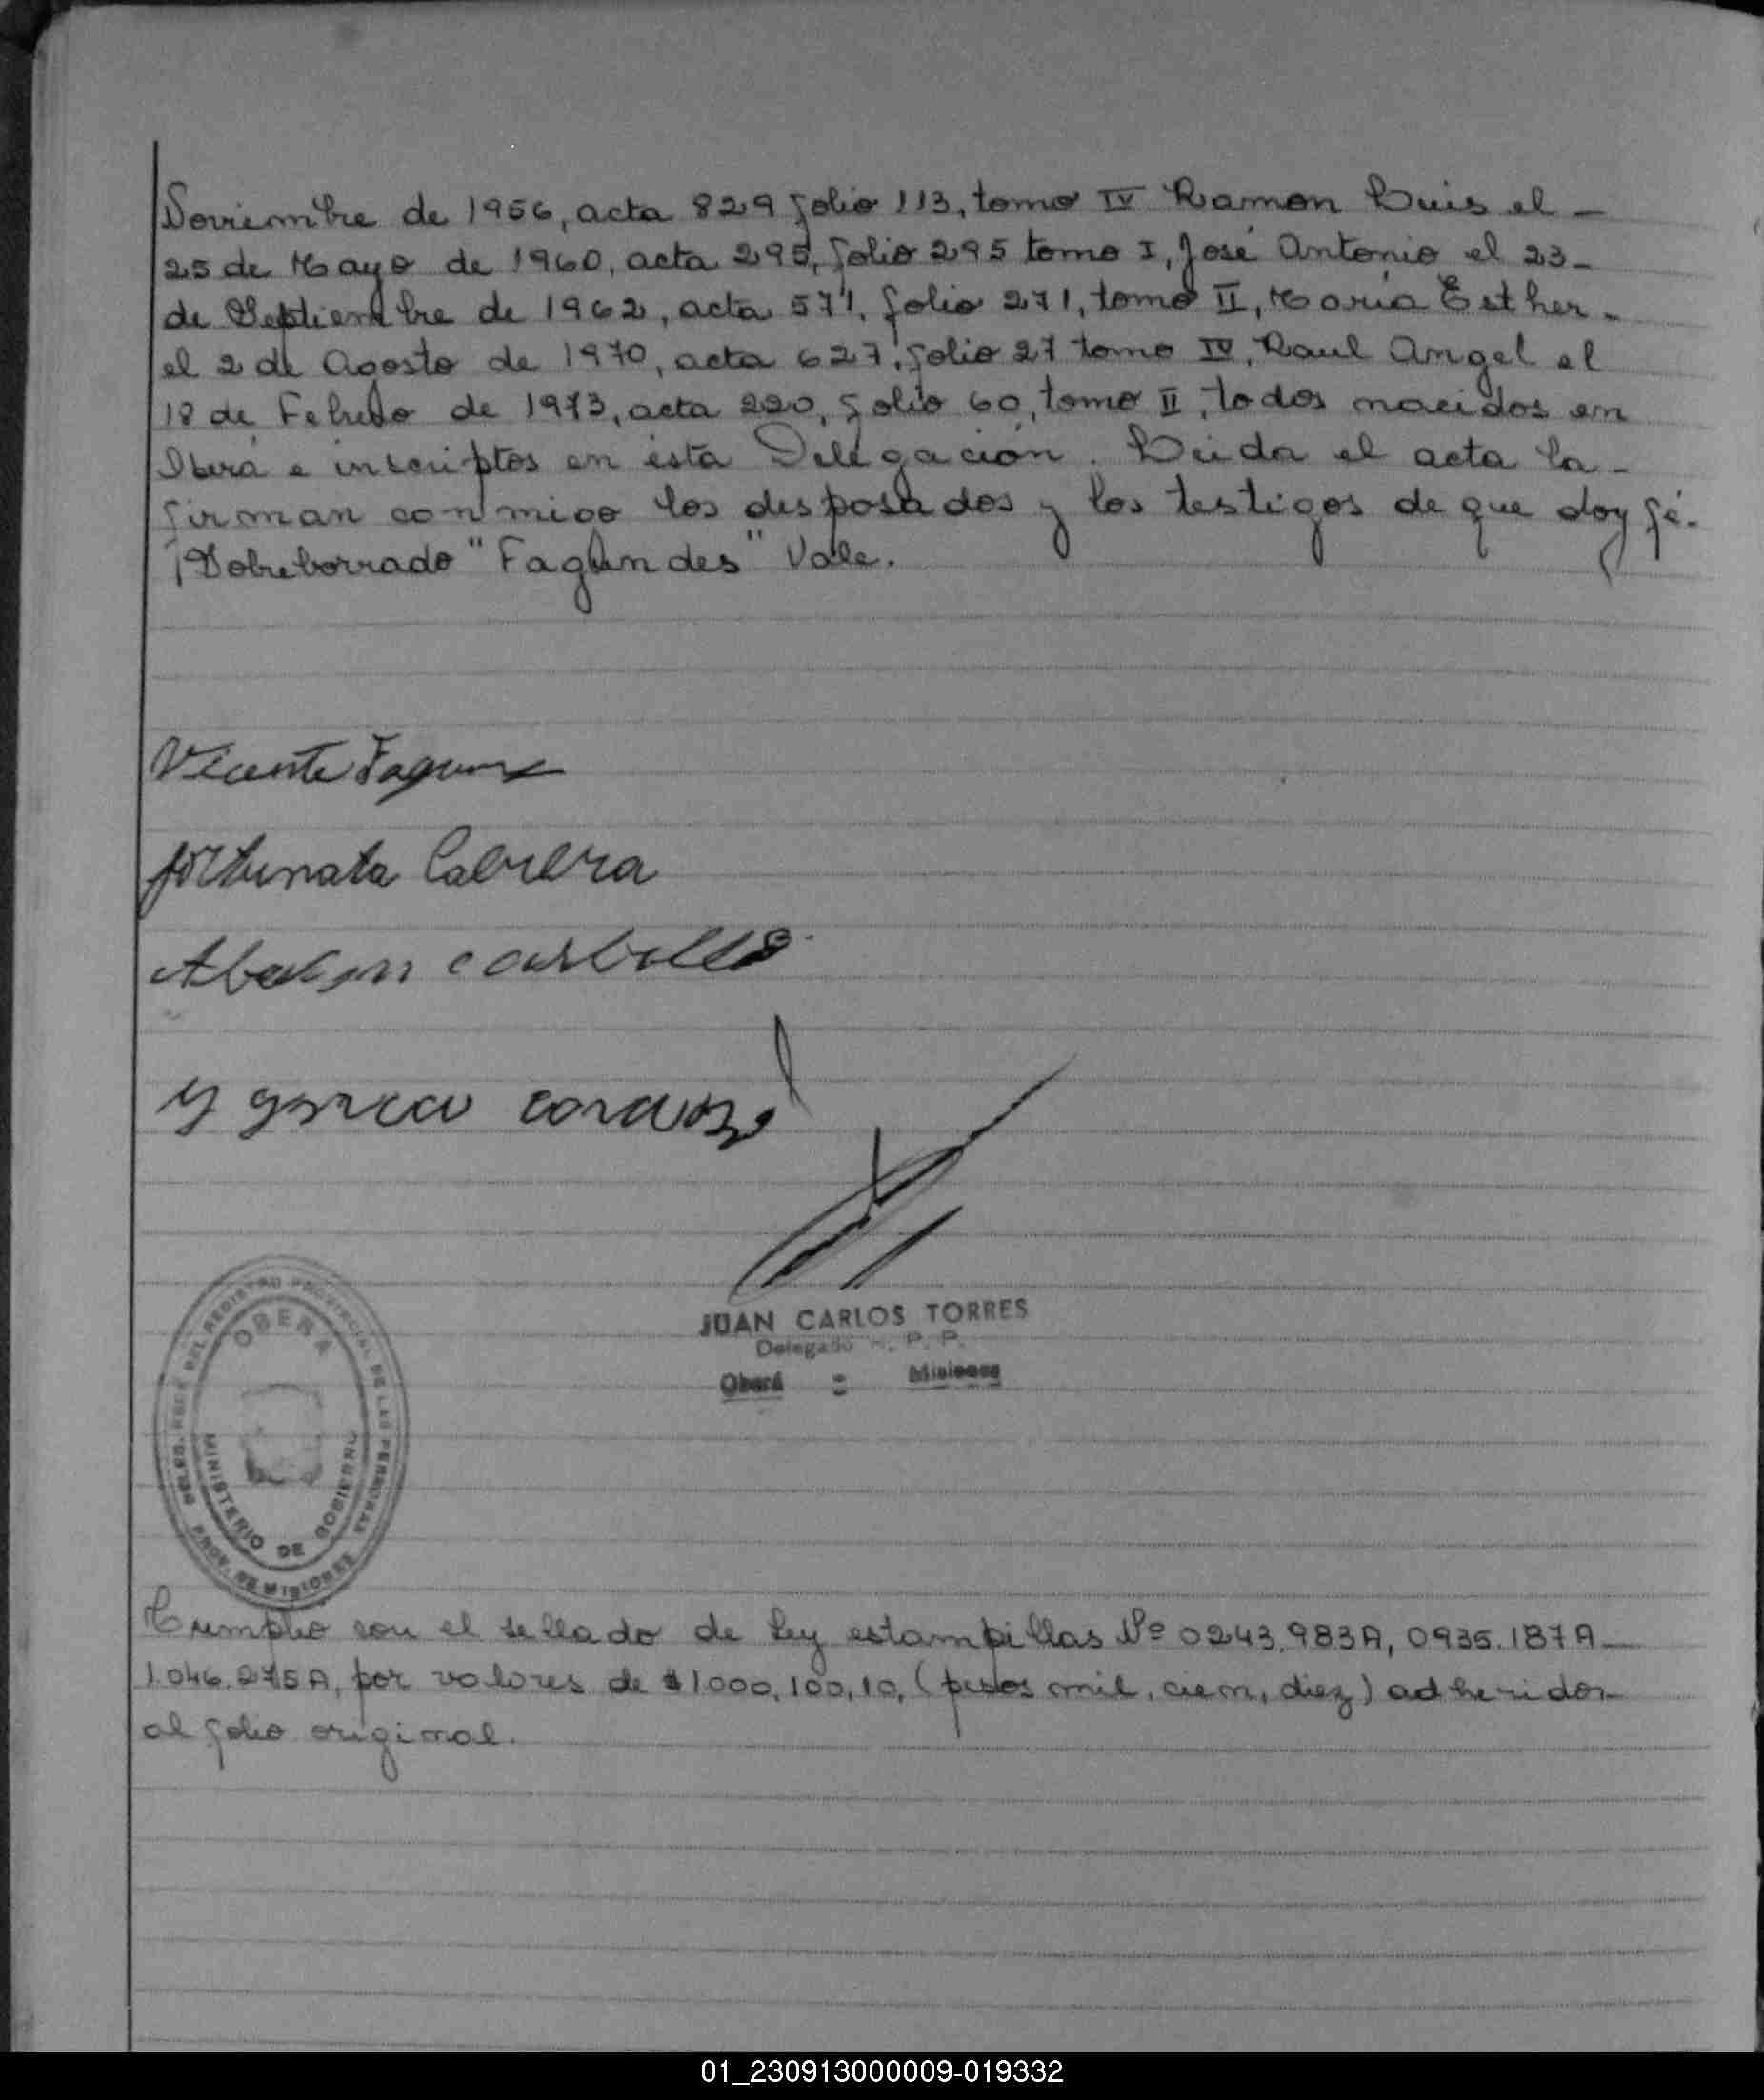 Noviembre de 1956, acta 829 folio 113, tomo IV Ramon Luis el -
25 de Mayo de 1960, acta 295, folio 295 tomo I, José Antonio el 23-
de Septiembre de 1962, acta 571, folio 271, tomo II, Maria Esther-
el 2 de Agosto de 1970, acta 627, folio 27 tomo IV, Raul Angel el
18 de Febrero de 1973, acta 220, folio 60, tomo II, todos nacidos en
Oberá e inscriptos en ésta Delegación. Leida el acta la-
firman conmigo los desposados y los testigos de que doy fé.
Sobreborrado "Fagundes" Vale.
Vicente
fortunata Cabrera
JUAN CARLOS TORRES
Delegado R. P. P.
Oberá - Misiones
OBERA
MINISTERIO DE GOBIERNO
REGISTRO PROVINCIAL DE LAS PERSONAS
PROV. DE MISIONES
Cumplio con el sellado de Ley estampillas Nº 0243.983A, 0935.187A-
1.046.275A, por valores de $1000,100,10, (pesos mil, cien, diez) adheridos-
al folio original.
01_230913000009-019332